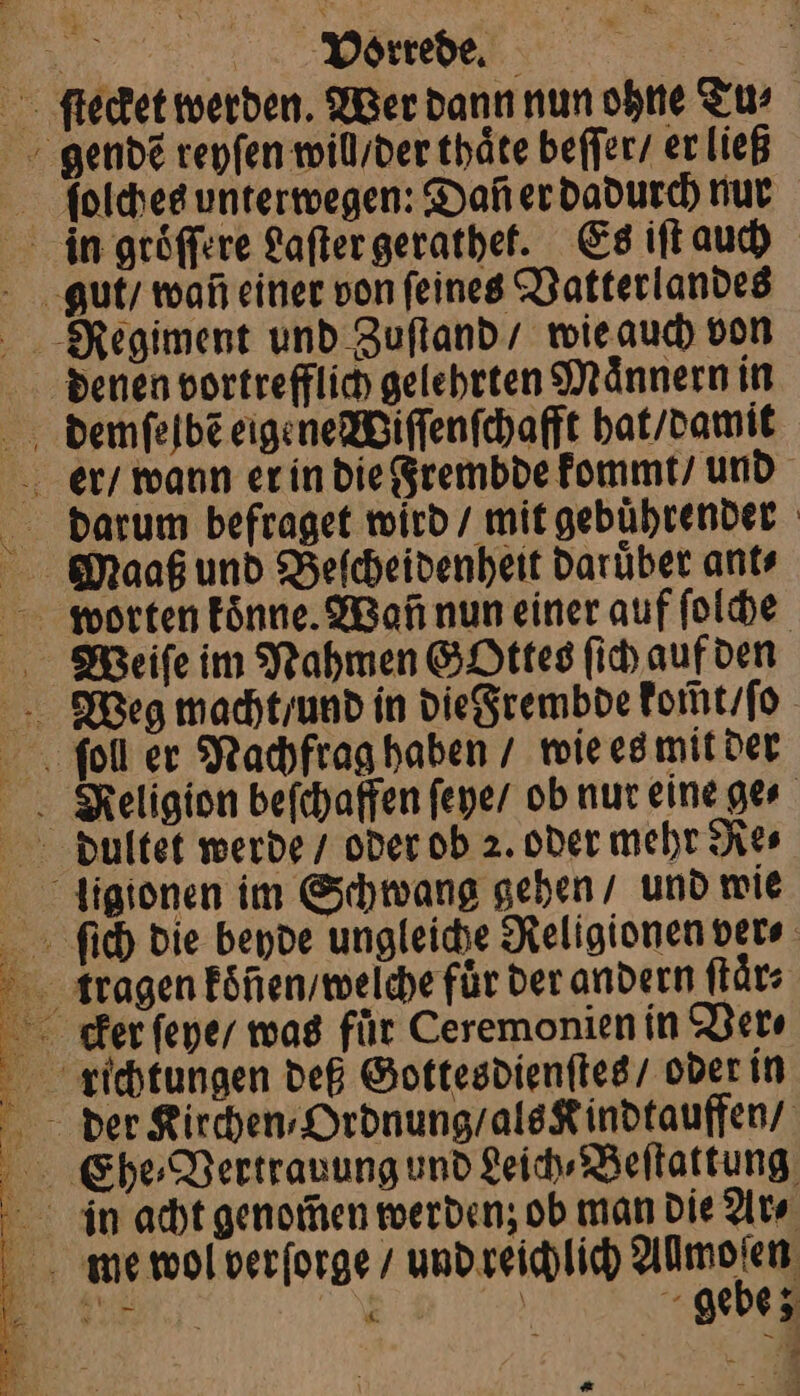 Vorrede.
ſtecket werden. Wer dann nun ohne Tu⸗
gendẽ reyſen will/der thaͤte beſſer/ er ließ
ſolches unterwegen: Dañ er dadurch nur
in groͤſſere Laſter gerathet. Es iſt auch
gut/ wañ einer von ſeines Vatterlandes
Regiment und Zuſtand / wie auch von
denen vortrefflich gelehrten Maͤnnern in
demſelbẽ eigene Wiſſenſchafft hat/damit
er/ wann er in die Frembde kommt/ und
darum befraget wird / mit gebuͤhrender
Maaß und Beſcheidenheit daruͤber ant⸗
worten koͤnne. Wañ nun einer auf ſolche
Weiſe im Nahmen GOttes ſich auf den
Weg macht/und in die Frembde kom̃t/ſo
ſoll er Nachfrag haben / wie es mit der
Religion beſchaffen ſeye/ ob nur eine ge⸗
dultet werde / oder ob 2. oder mehr Re⸗
ligionen im Schwang gehen / und wie
ſich die beyde ungleiche Religionen ver⸗
tragen koͤñen/welche fuͤr der andern ſtaͤr⸗
cker ſeye/ was fuͤr Ceremonien in Ver⸗
richtungen deß Gottesdienſtes / oder in
der Kirchen⸗Ordnung/als Kindtauffen/
Ehe⸗Vertrauung und Leich⸗Beſtattung
in acht genom̃en werden; ob man die Ar⸗
me wol verſorge / und reichlich Allmoſen
gebe;